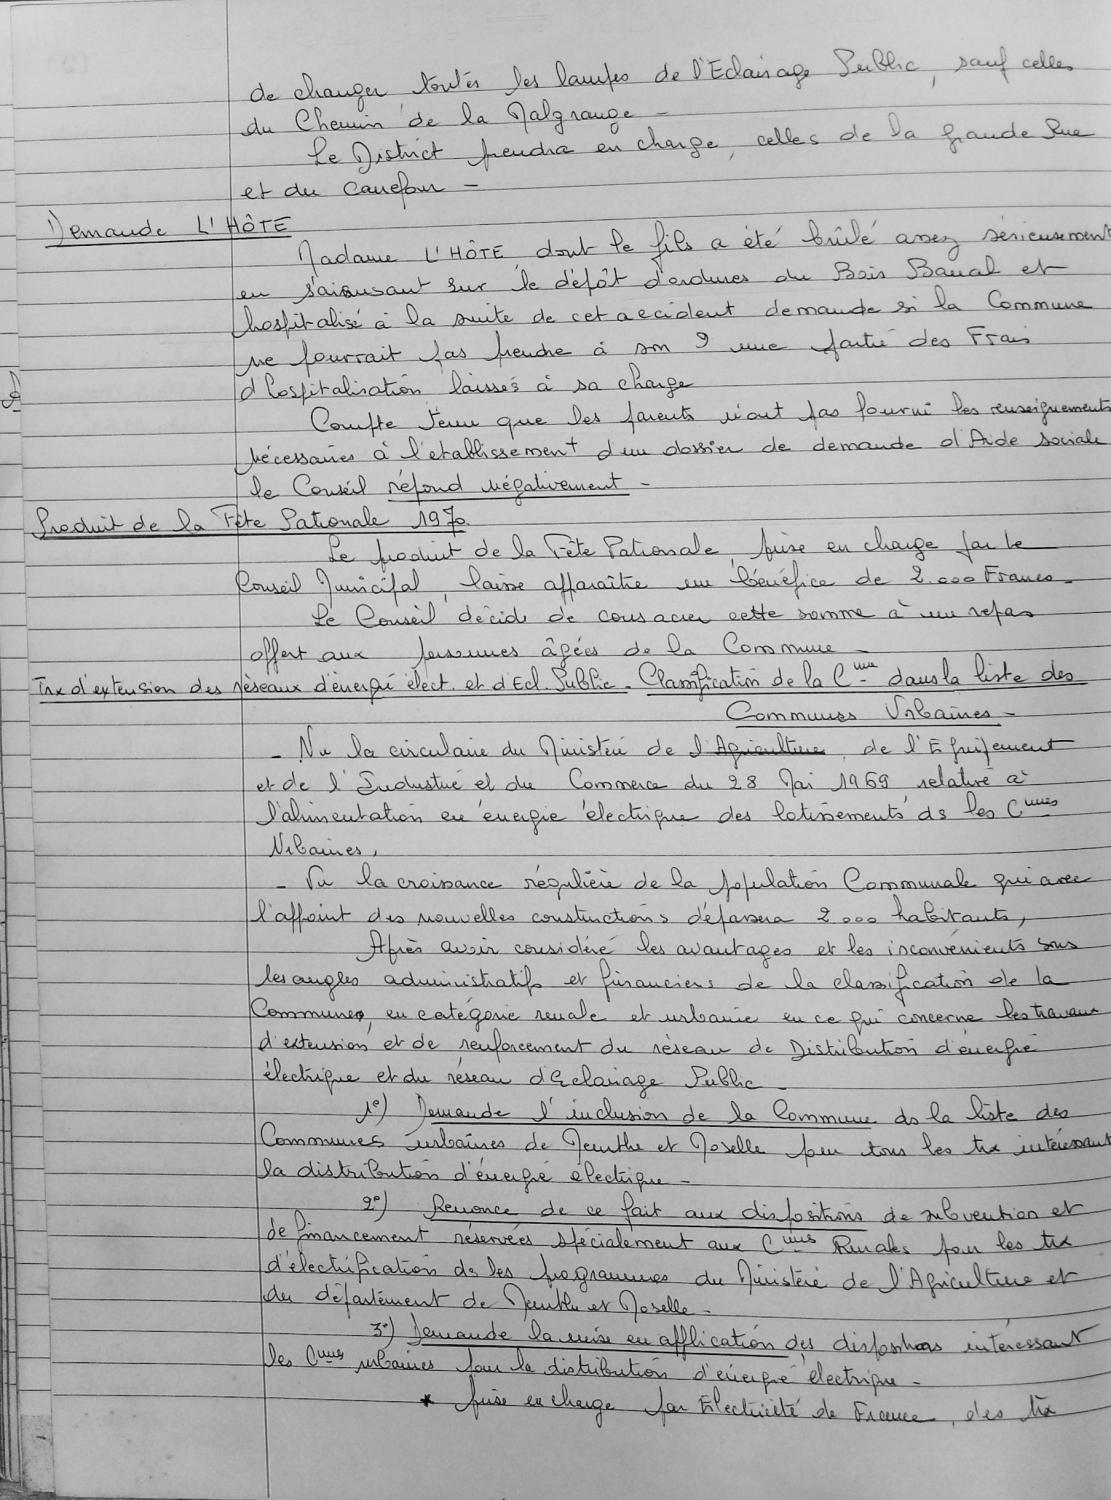 de changer toutes les lampes de l'Eclairage Public, sauf celles
du Chemin de la Malgrange -
Le District prendra en charge, celles de la grande Rue
et du Carrefour -
Demande L'HÔTE
Madame L'HÔTE dont le fils a été brûlé assez sérieusement
en s'amusant sur le dépôt d'ordures du Bois Banal et
hospitalisé à la suite de cet accident demande si la Commune
ne pourrait pas prendre à son une partie des Frais
d'hospitalisation laissés à sa charge
Compte tenu que les parents n'ont pas fourni les renseignements
nécessaires à l'établissement d'un dossier de demande d'Aide sociale
le Conseil répond négativement -
Produit de la Fête Patronale 1970
Le produit de la Fête Patronale, prise en charge par le
Conseil Municipal, laisse apparaître un bénéfice de 2.000 Francs.
Le Conseil décide de consacrer cette somme à un repas
offert aux personnes âgées de la Commune -
Trx d'extension des réseaux d'énergie élect. et d'Ecl. Public - Classification de la Cmne dans la liste des
Communes Urbaines -
- Vu la circulaire du Ministère de l'Agriculture, de l'Equipement
et de l'Industrie et du Commerce du 28 Mai 1969 relative à
l'alimentation en énergie électrique des lotissements ds les Cmnes
Urbaines,
- Vu la croissance régulière de la population Communale qui avec
l'appoint des nouvelles constructions dépassera 2.000 habitants,
Après avoir considéré les avantages et les inconvénients sous
les angles administratifs et financiers de la classification de la
Commune, en catégorie rurale et urbaine en ce qui concerne les travaux
d'extension et de renforcement du réseau de Distribution d'énergie
électrique et du réseau d'Eclairage Public -
1°) Demande l'inclusion de la Commune ds la liste des
Communes urbaines de Meurthe et Moselle pour tous les trx intéressant
la distribution d'énergie électrique -
2°) Renonce de ce fait aux dispositions de subvention et
de financement réservées spécialement aux Cmnes Rurales pour les trx
d'électrification ds les programmes du Ministère de l'Agriculture et
du département de Meurthe et Moselle -
3°) Demande la mise en application des dispositions intéressant
les Cmnes urbaines pour la distribution d'énergie électrique -
* prise en charge par Electricité de France, des trx